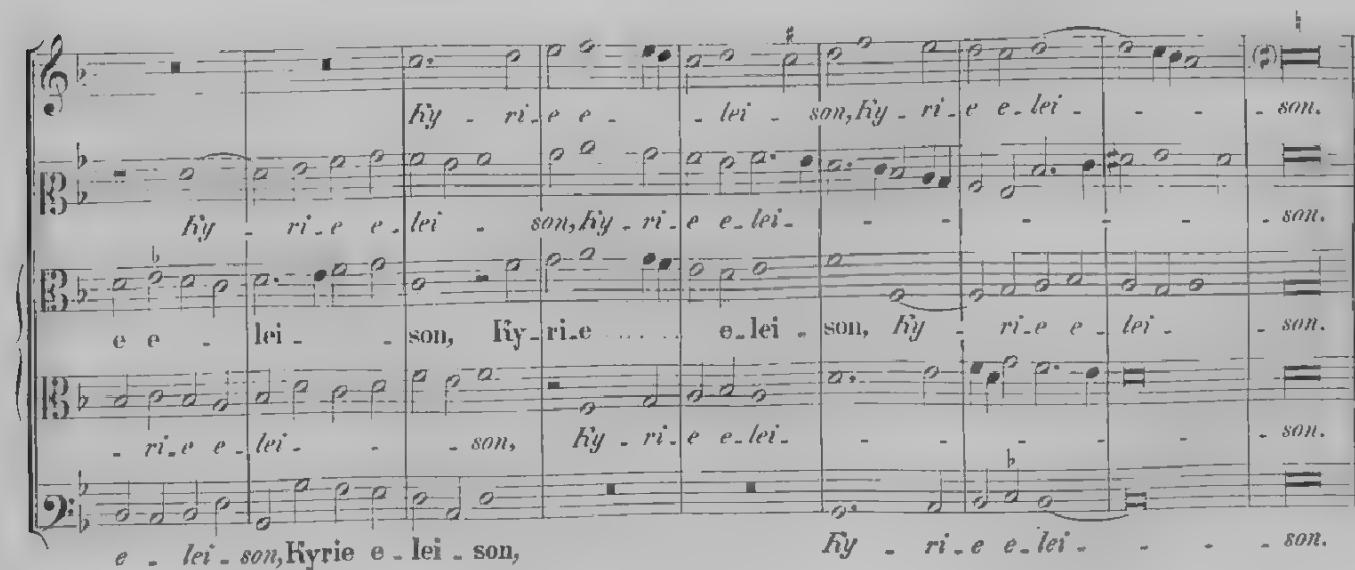 Ky - ri-e e - - lei - son, Ky - ri-e e-lei - - - - son.
Ky - ri-e e-lei - son, Ky - ri-e e-lei - - - - - - son.
e e - lei - - son, Ky-ri-e ...... e-lei - son, Ky - ri-e e - lei - - son.
- ri-e e-lei - - - son, Ky - ri-e e-lei - - - - - - - son.
e - lei-son, Kyrie e-lei-son, Ky - ri-e e-lei - - - son.